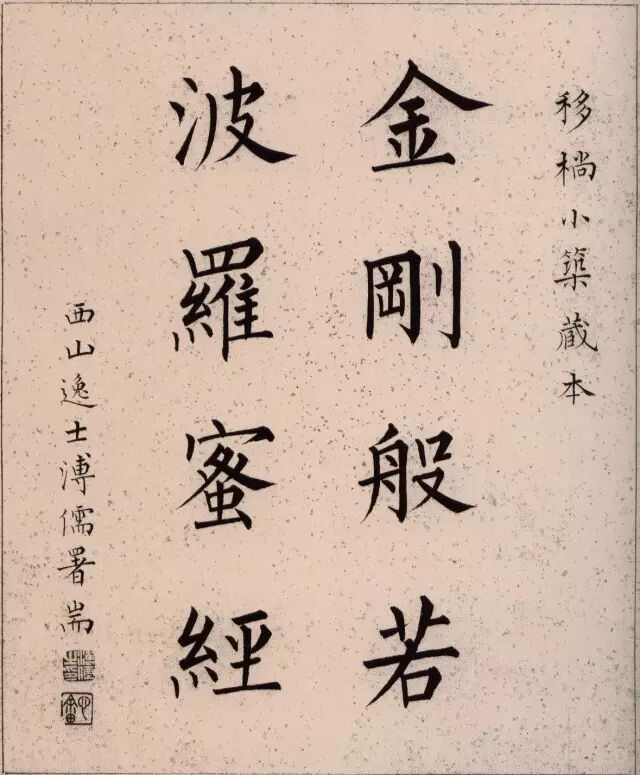 移椾小築蔵本
金剛般若
波羅蜜經
西山逸士溥儒署耑